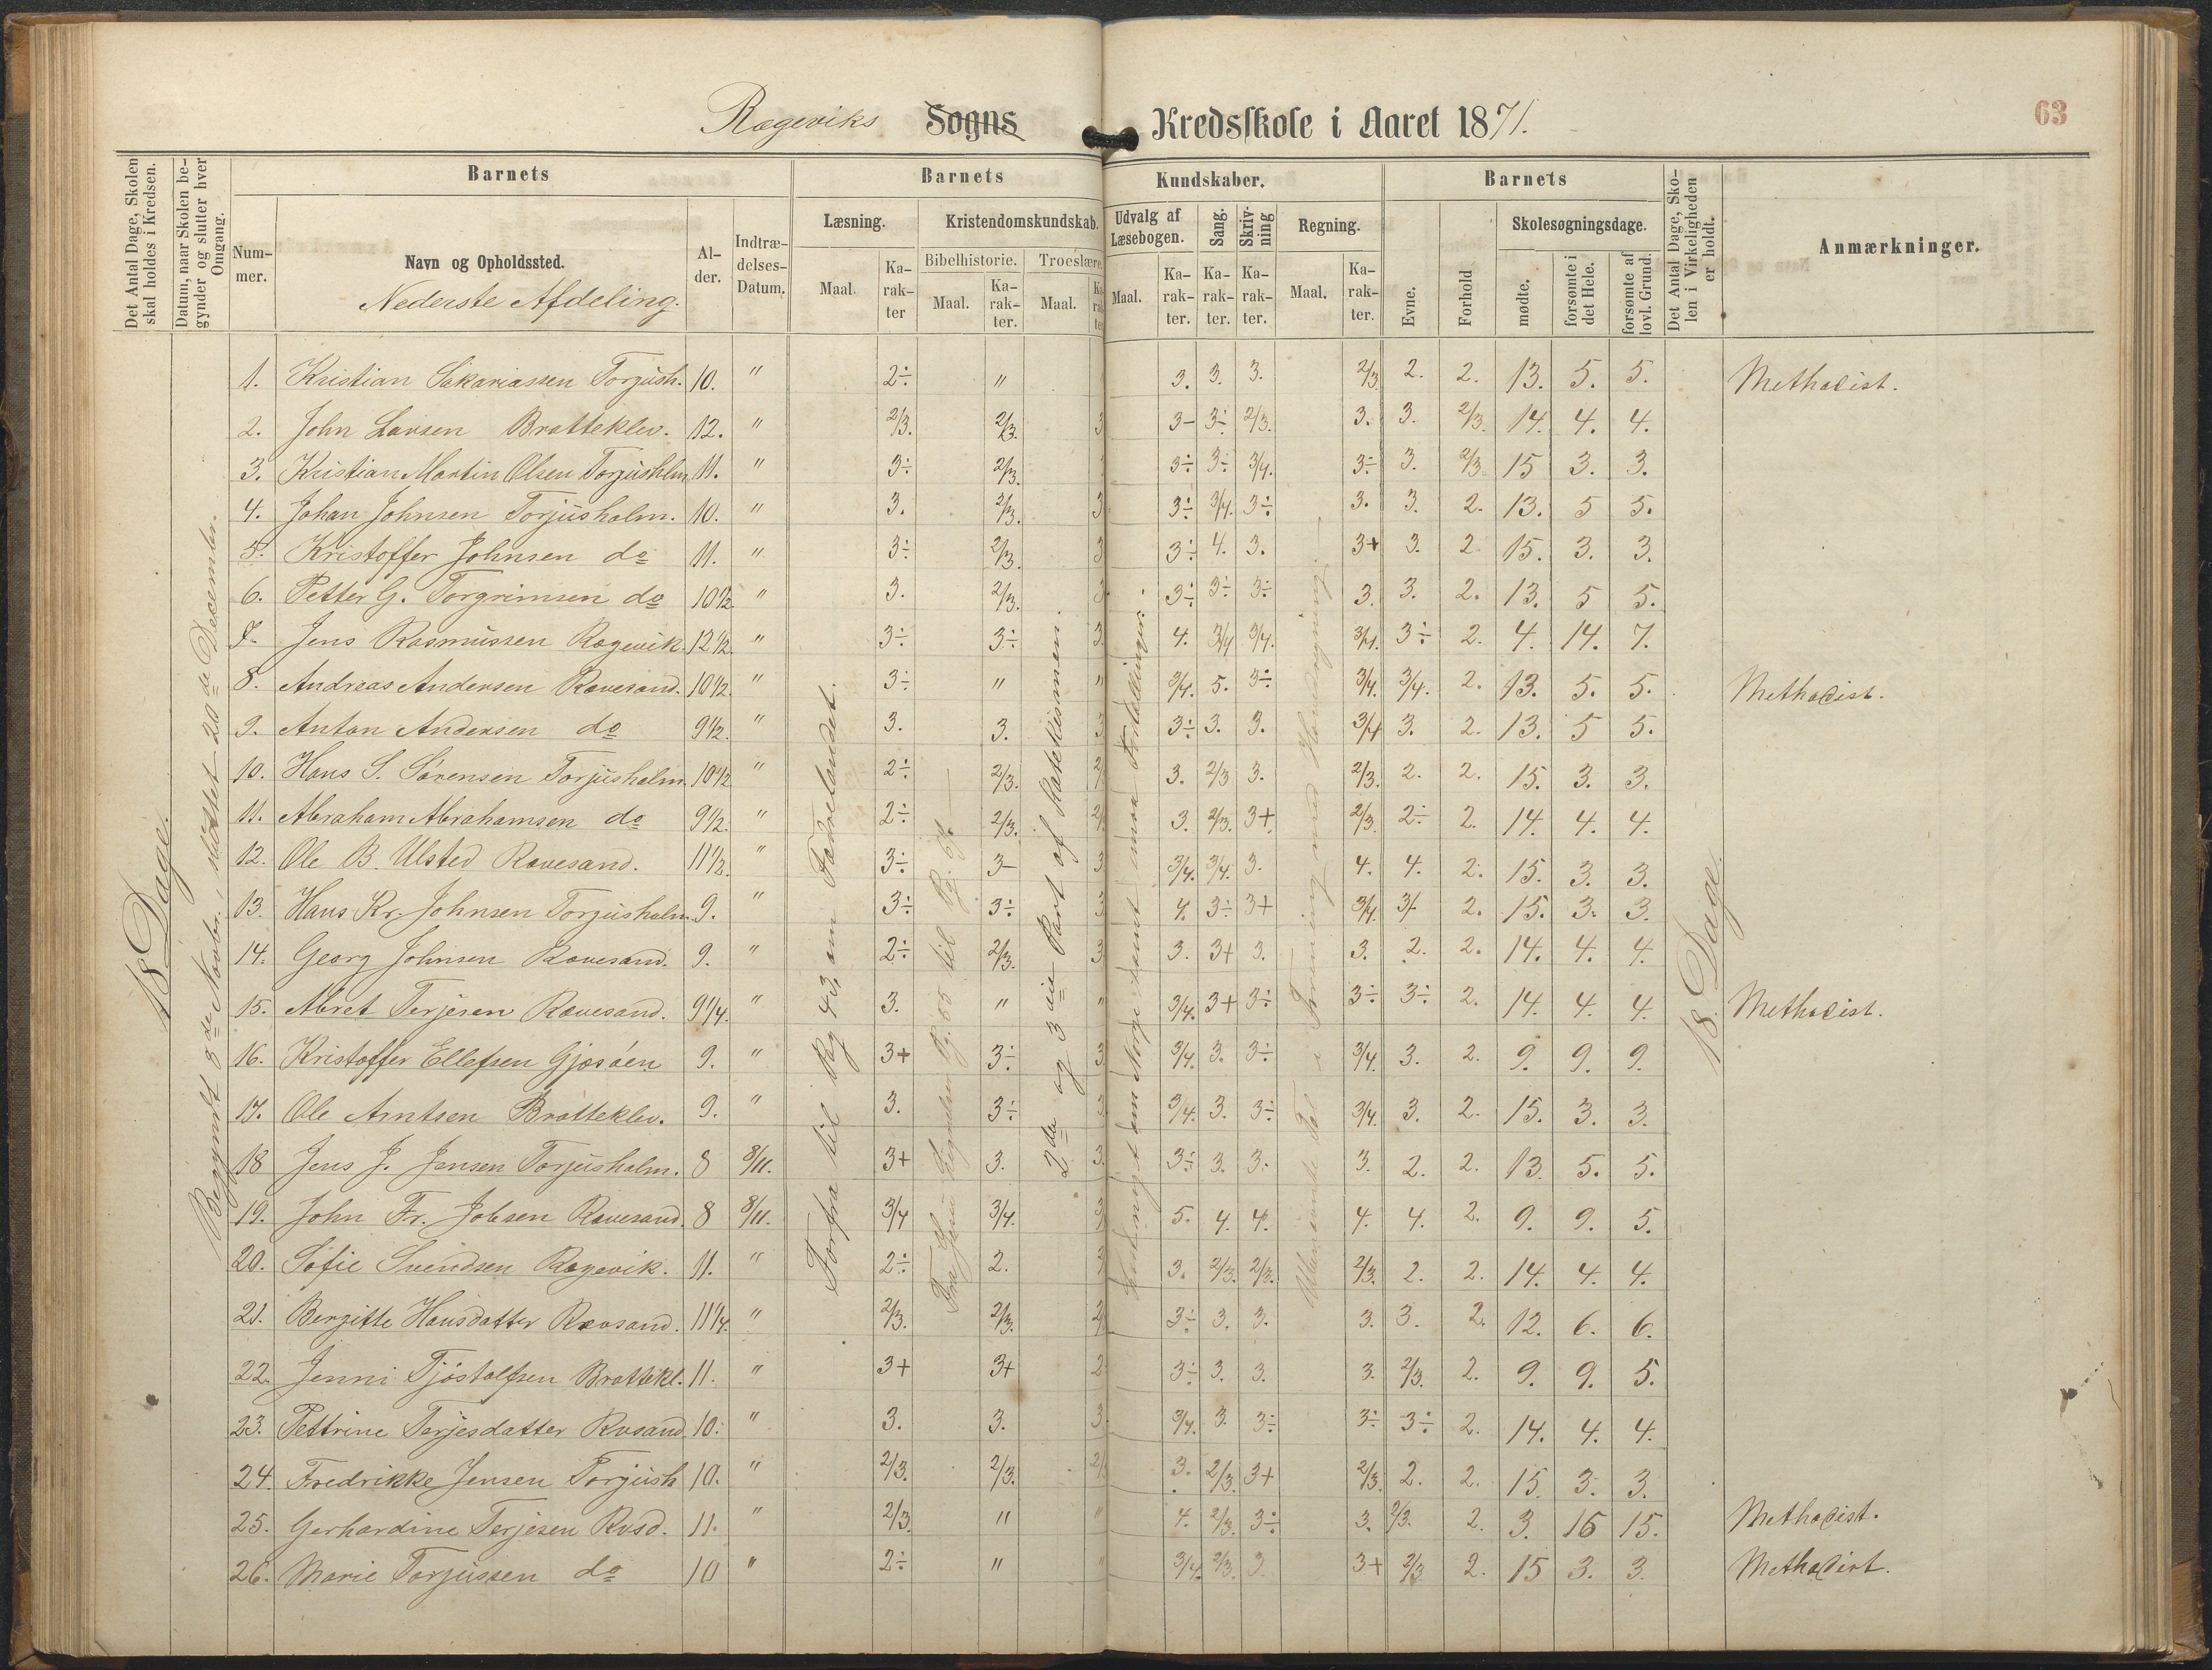 Rægeviks Sogns Kredsskole i Aaret 1871.
63
Det Antal Dage, Skolen skal holdes i Kredsen.
Datum, naar Skolen begynder og slutter hver Omgang.
Barnets
Barnets
Kundskaber.
Barnets
Det Antal Dage, Skolen i Virkeligheden er holdt.
Anmærkninger.
Nummer.
Navn og Opholdssted.
Alder.
Indtrædelses-Datum.
Læsning.
Kristendomskundskab.
Udvalg af Læsebogen.
Sang.
Skrivning
Regning.
Evne.
Forhold
Skolesøgningsdage.
Maal.
Karakter
Bibelhistorie.
Troeslære.
Maal.
Karakter.
Maal.
Karakter
Maal.
Karakter.
Karakter.
Karakter.
Maal.
Karakter.
mødte.
forsømte i det Hele.
forsømte af lovl. Grund.
Nederste Afdeling.
18 Dage.
Begyndt 8de Novbr., sluttet 20de December.
Forfra til Pag 43, om Fædrelandet.
2den og 3die Part af Katekismen.
18. Dage.
1. Kristian Sakariassen Torjush. 10. " 2÷ " 3. 3. 3. 2/3 2. 2. 13. 5. 5. Methodist.
2. John Larsen Bratteklev. 12. " 2/3. 2/3. 3 3- 3÷ 2/3. 3. 3. 2/3. 14. 4. 4.
3. Kristian Martin Olsen Torjushlm. 11. " 3÷ 2/3. 3÷ 3÷ 3/4. 3÷ 3. 2/3. 15 3. 3.
4. Johan Johnsen Torjusholm. 10. " 3. 2/3. 3 3÷ 3/4. 3÷ 3. 3. 2. 13. 5 5.
5. Kristoffer Johnsen do 11. " 3÷ 2/3. 3 3÷ 4. 3. 3+ 3. 2. 15. 3. 3.
6. Petter G. Torgrimsen do 10 1/2. " 3. 2/3. 3. 3÷ 3÷ 3÷ 3. 3. 2. 13. 5 5.
7. Jens Rasmussen Rægevik. 12 1/2. " 3÷ 3÷ 3 4. 3/4 3/4. 3/4. 3÷ 2. 4. 14. 7.
8. Andreas Andersen Ravesand. 10 1/2. " 3÷ " " 3/4. 5. 3÷ 3/4. 3/4. 2. 13. 5. 5. Methodist.
9. Anton Andersen do 9 1/2. " 3. 3. 3 3÷ 3. 3. 3/4 3. 2. 13. 5 5.
10. Hans S. Sørensen Torjusholm. 10 1/2 " 2÷ 2/3. 2/ 3. 2/3 3. 2/3. 2. 2. 15. 3. 3.
11. Abraham Abrahamsen do 9 1/2. " 2÷ 2/3. 2/ 3. 2/3. 3+ 2/3. 2÷ 2. 14. 4. 4.
12. Ole B. Ulsted Ravesand. 11 1/2. " 3÷ 3- 3 3/4. 3/4. 3. 4. 4. 2. 15. 3. 3.
13. Hans Kr. Johnsen Torjusholm. 9. " 3÷ 3÷ 3 4. 3÷ 3+ 3/4. 3/. 2. 15. 3. 3.
14. Georg Johnsen Ravesand. 9. " 2÷ 2/3. 3 3. 3+ 3. 3. 2. 2. 14. 4. 4.
15. Abret Terjesen Ravesand. 9 1/4. " 3. " " 3/4. 3+ 3÷ 3÷ 3÷ 2. 14. 4. 4. Methodist.
16. Kristoffer Ellefsen Gjosøen 9. " 3+ 3÷ 3 3/4. 3. 3÷ 3/4. 3. 2. 9. 9. 9.
17. Ole Arntsen Bratteklev. 9. " 3. 3÷ 3. 3/4. 3. 3÷ 3/4. 3. 2. 15. 3. 3.
18 Jens J. Jensen Torjusholm. 8 8/11. 3+ 3. 3. 3÷ 3. 3. 3. 2. 2. 13 5. 5.
19. John Fr. Jobsen Ravesand. 8 8/11. 3/4 3/4. 3/ 5. 4. 4. 4. 4. 2. 9. 9. 5.
20. Sofie Svendsen Rægevik. 11. " 2÷ 2. 3. 2/3. 2/3. 2/3. 2. 2. 14. 4. 4.
21. Bergitte Hansdatter Ravsand. 11 1/4. " 2/3. 2/3. 2/ 3÷ 3. 3. 3. 3. 2. 12. 6. 6.
22. Jenni Tjøstolfsen Brattekl. 11. " 3+ 3+ 2 3÷ 3. 3. 3. 2/3. 2. 9. 9. 5.
23. Pettrine Terjesdatter Rvsand. 10. " 3. 3. 3. 3/4. 3. 3÷ 3÷ 3÷ 2. 14. 4. 4.
24. Fredrikke Jensen Torjush 10. " 2/3. 2/3. 2/ 3. 2/3. 3+ 2/3. 2. 2. 15 3. 3.
25. Gerhardine Terjesen Rvsd. 11. " 2/3. " " 4. 2/3. 3÷ 3. 2/3. 2. 3. 15 15. Methodist.
26. Marie Torjussen do 10 " 2÷ " " 3/4. 2/3. 3. 3+ 2/3. 2. 15 3. 3. Methodist.